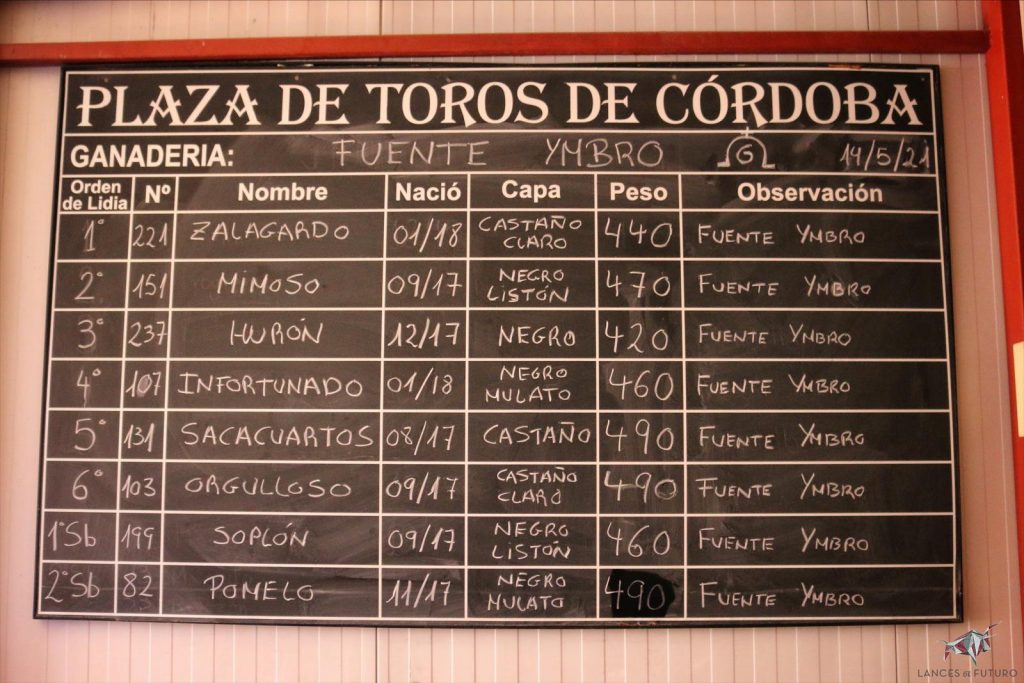 PLAZA DE TOROS DE CÓRDOBA
GANADERIA: FUENTE YMBRO G 14/5/21
Orden de Lidia Nº Nombre Nació Capa Peso Observación
1º 221 ZALAGARDO 01/18 CASTAÑO CLARO 440 FUENTE YMBRO
2º 151 MIMOSO 09/17 NEGRO LISTÓN 470 FUENTE YMBRO
3º 237 HURÓN 12/17 NEGRO 420 FUENTE YMBRO
4º 107 INFORTUNADO 01/18 NEGRO MULATO 460 FUENTE YMBRO
5º 131 SACACUARTOS 08/17 CASTAÑO 490 FUENTE YMBRO
6º 103 ORGULLOSO 09/17 CASTAÑO CLARO 490 FUENTE YMBRO
1ºSb 199 SOPLÓN 09/17 NEGRO LISTÓN 460 FUENTE YMBRO
2ºSb 82 POMELO 11/17 NEGRO MULATO 490 FUENTE YMBRO
LANCES DE FUTURO